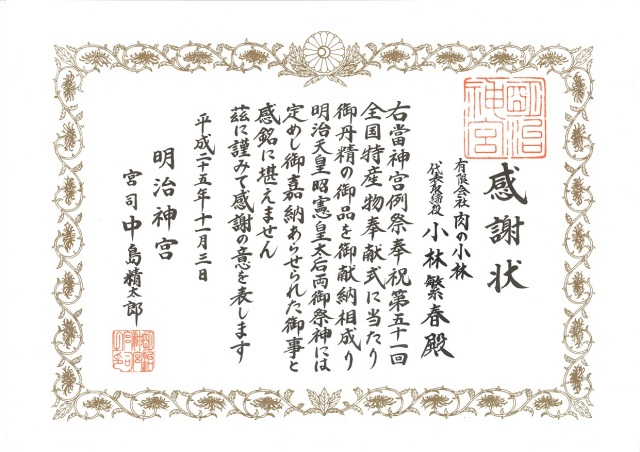 感謝状
有限会社 肉の小林
代表取締役 小林繁春殿
右當神宮例祭奉祝第五十一回
全国特産物奉献式に当たり
御丹精の御品を御献納相成り
明治天皇昭憲皇太后両御祭神には
定めし御嘉納あらせられた御事と
感銘に堪えません
茲に謹みて感謝の意を表します
平成二十五年十一月三日
明治神宮
宮司 中島精太郎
明治神宮